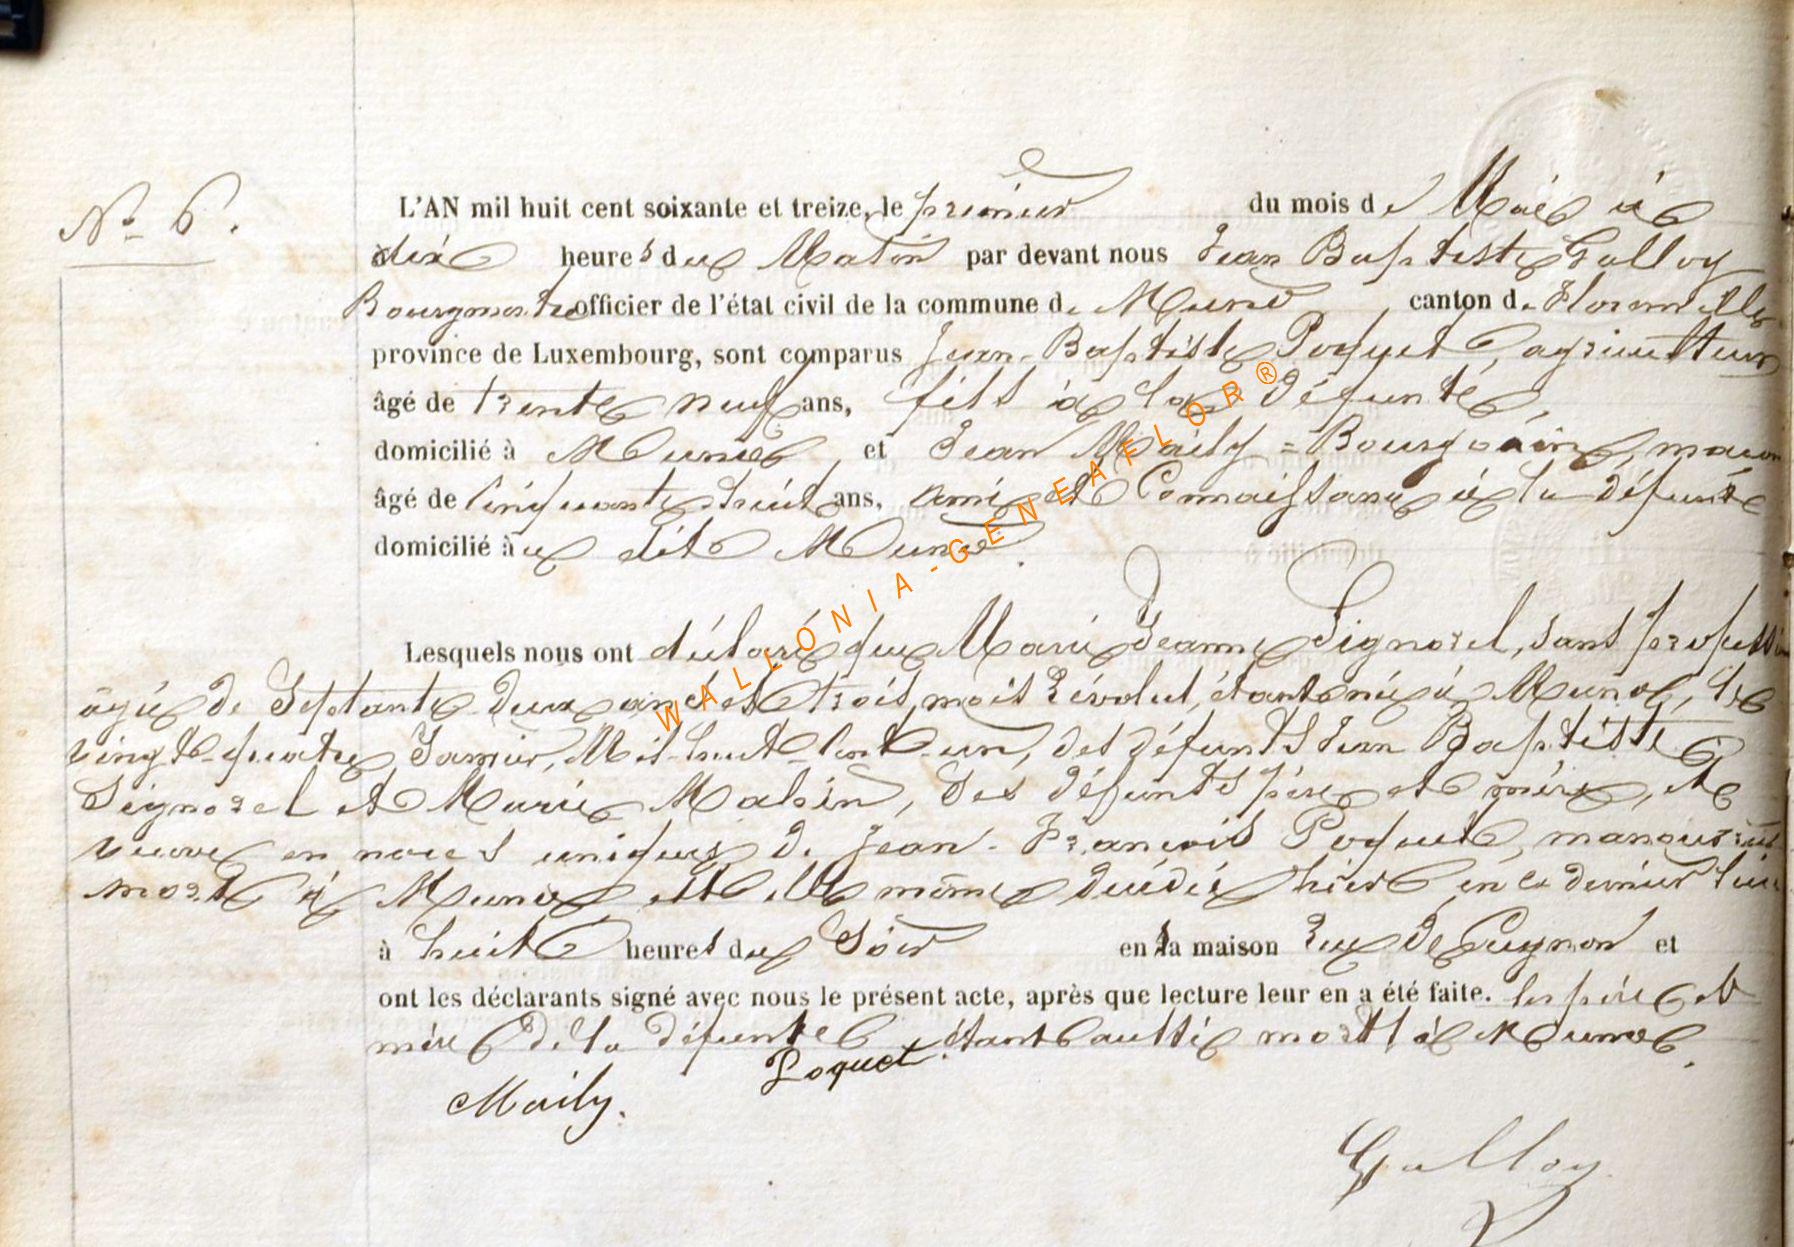 N° 6.
L'AN mil huit cent soixante et treize, le premier du mois de Mai à
dix heures du Matin par devant nous Jean Baptiste Galloy
Bourgmestre officier de l'état civil de la commune de Muno, canton de Florenville
province de Luxembourg, sont comparus Jean-Baptiste Poquet, agriculteur
âgé de trente neuf ans, fils à la défunte,
domicilié à Muno, et Jean Maily = Bourguoin, macon
âgé de cinquante huit ans, ami et Connaissance à la défunte
domicilié àu dit Muno.
Lesquels nous ont déclaré que Marie Jeanne Signorel, sans profession
âgée de Septante deux ans et trois mois révolus, étant née à Muno, le
vingt-quatre Janvier, Mil-huit-cent-un, des défunts Jean Baptiste
Signorel et Marie Mabin, ses défunts père et mère, et
veuve en noces uniques de Jean-François Poquet, manouvrier
mort à Muno est elle même décédée hier en ce dernier lieu
à huit heures du Soir en sa maison rue De Cugnon et
ont les déclarants signé avec nous le présent acte, après que lecture leur en a été faite. les père et
mère de la défunte étant aussi morts à Muno.
Poquet
Maily.
Galloy
WALLONIA-GENEAFLOR®